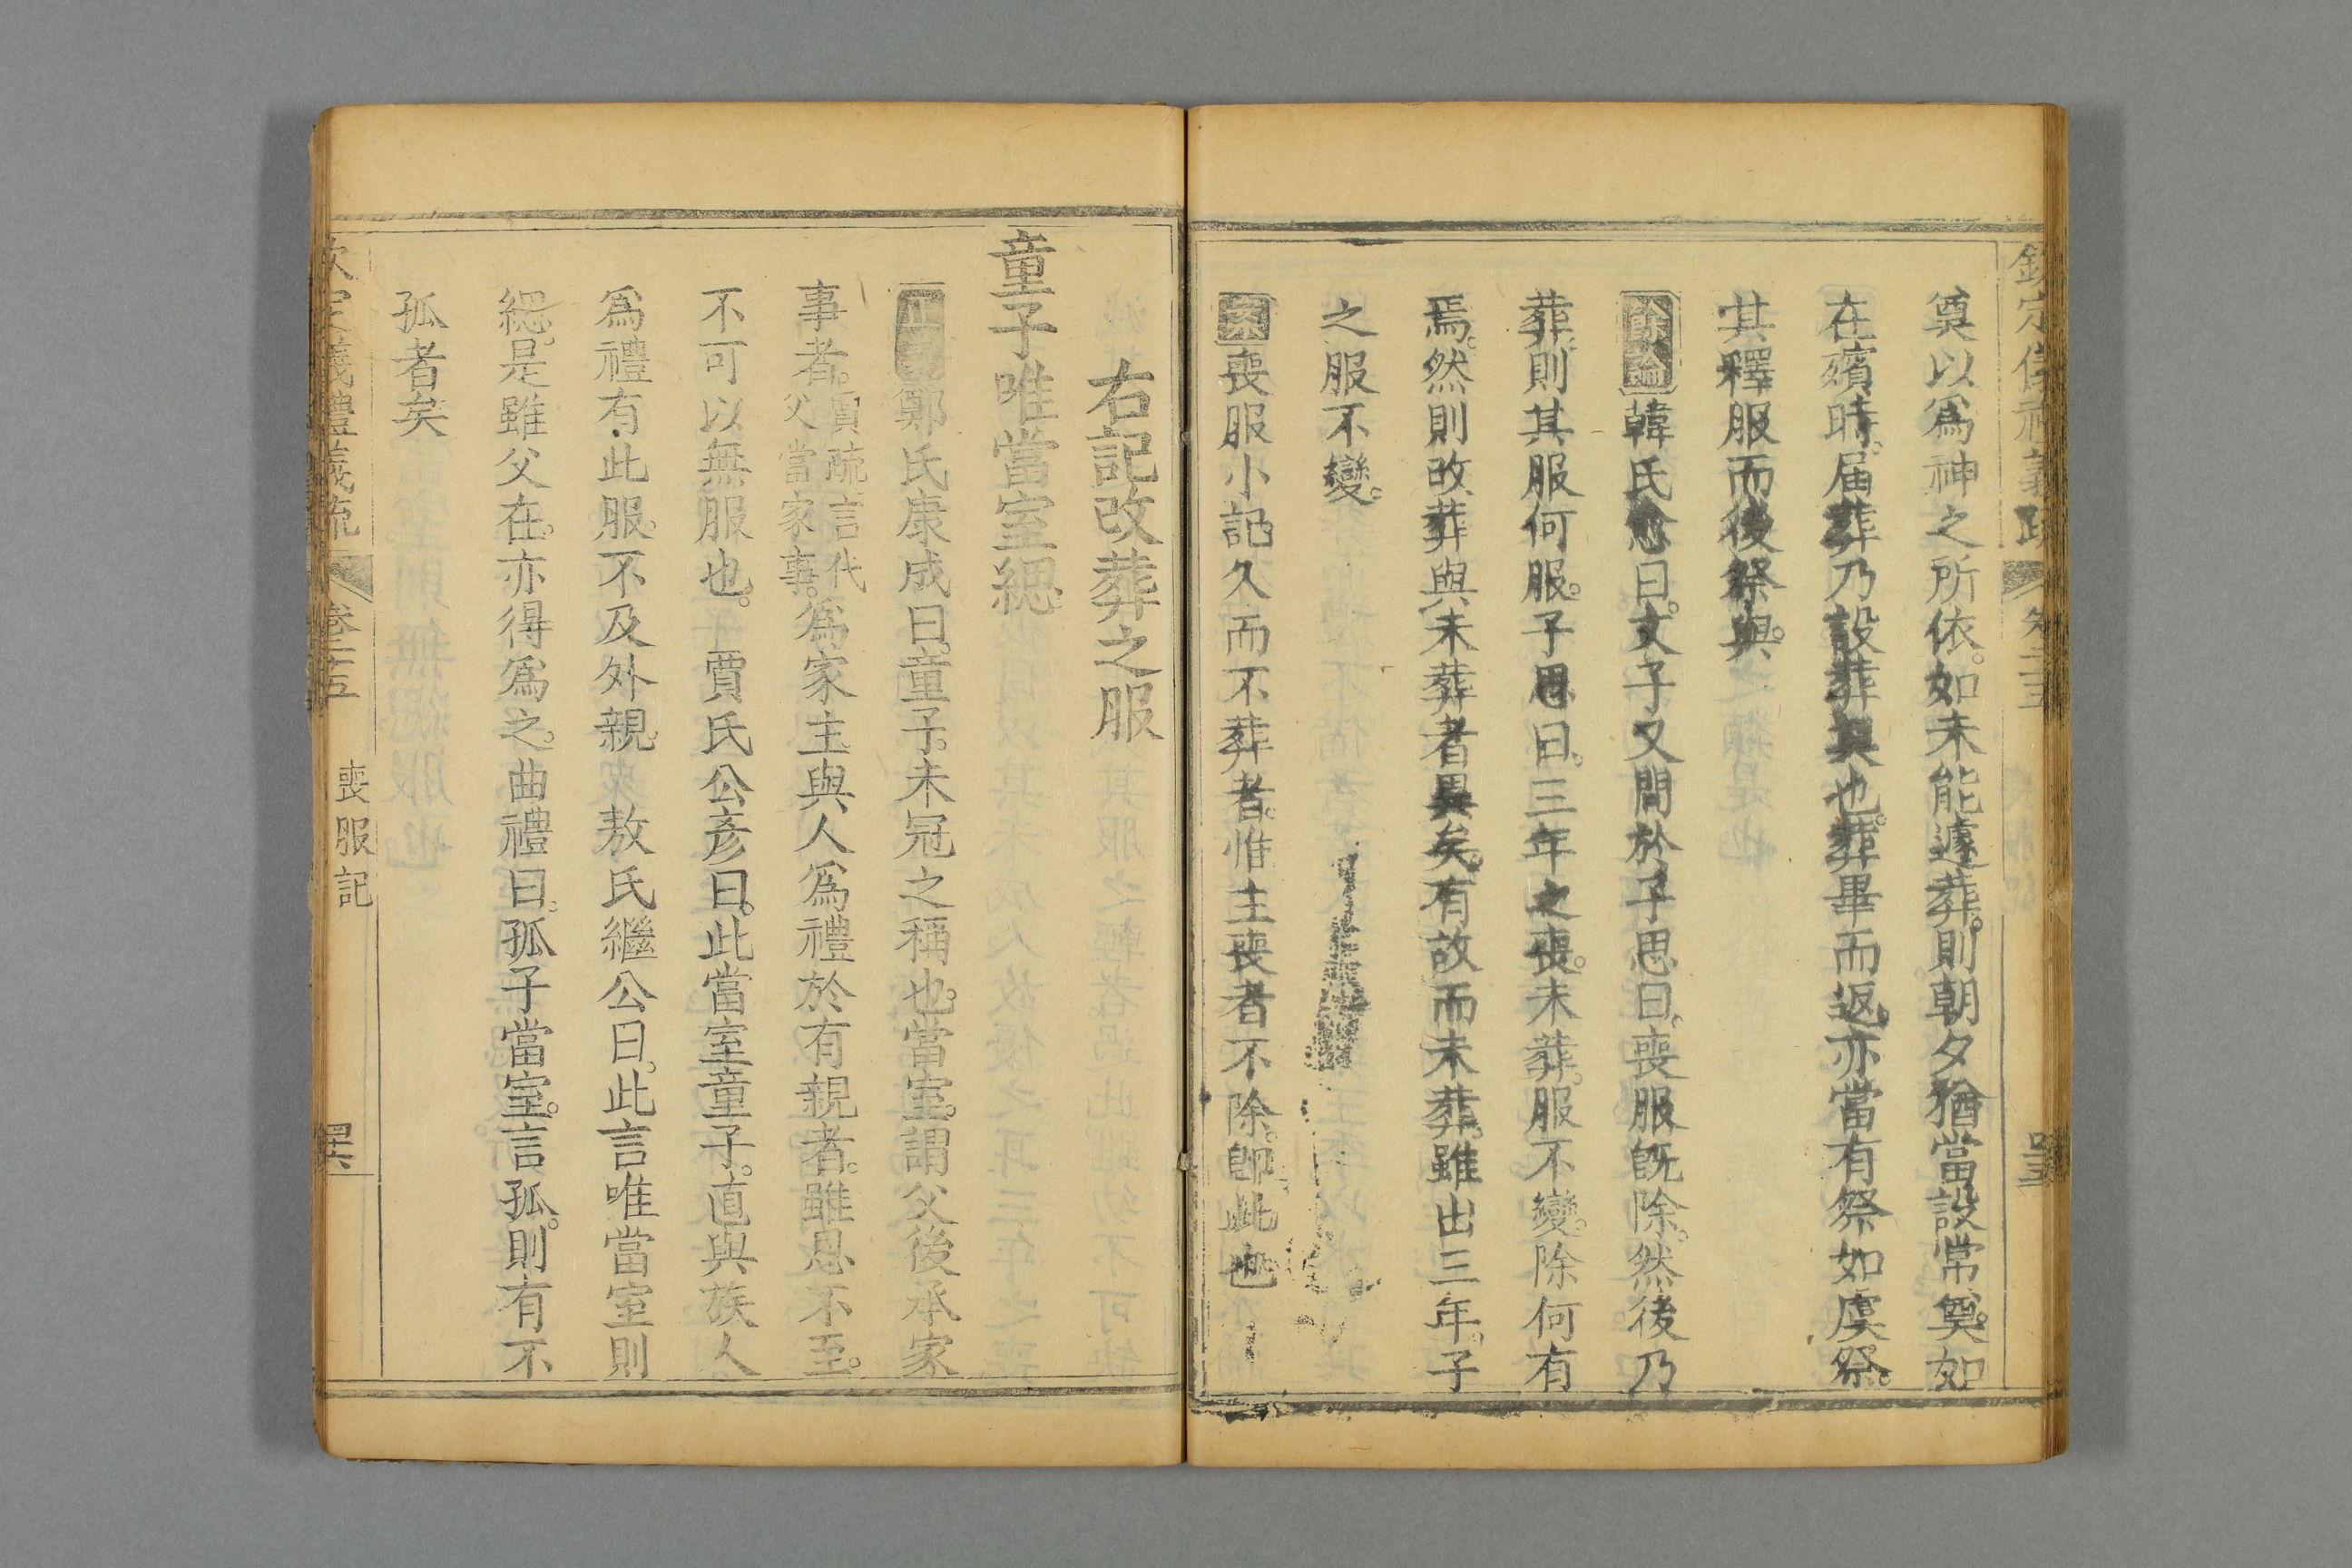 奠以為神之所依。如未能遽葬。則朝夕猶當設常奠。如
在殯時。届葬乃設葬奠也。葬畢而返。亦當有祭如虞祭。
其釋服而後祭與。
餘論韓氏愈曰。文子又問於子思曰。喪服旣除。然後乃
葬。則其服何服。子思曰。三年之喪。未葬。服不變。除何有
焉。然則改葬與未葬者異矣。有故而未葬。雖出三年。子
之服不變。
案喪服小記久而不葬者。惟主喪者不除。卽此也
右記改葬之服
童子唯當室緦
正義鄭氏康成曰。童子。未冠之稱也。當室。謂父後承家
事者。賈疏言代父當家事。為家主。與人為禮。於有親者。雖恩不至。
不可以無服也。 賈氏公彥曰。此當室童子。直與族人
為禮有此服。不及外親。 敖氏繼公曰。此言唯當室則
緦。是雖父在。亦得為之。曲禮曰。孤子當室。言孤。則有不
孤者矣
欽定儀禮義疏 卷二十五 喪服記